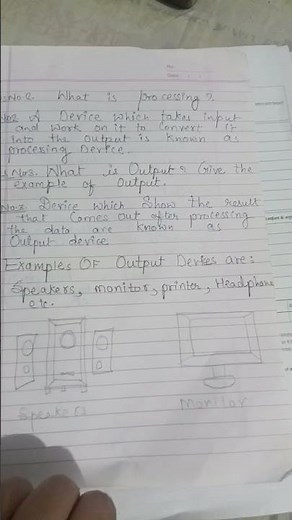 No.2 What is processing?
No2 A Device which takes input
and work on it to convert it
into the output is known as
processing Device.
No3. What is Output? Give the
example of Output.
No.3 Device which Show the result
that Comes out after processing
the data are known as
Output device
Examples OF Output Devices are:
Speakers, monitor, printer, Headphone
etc.
Speakers
Monitor